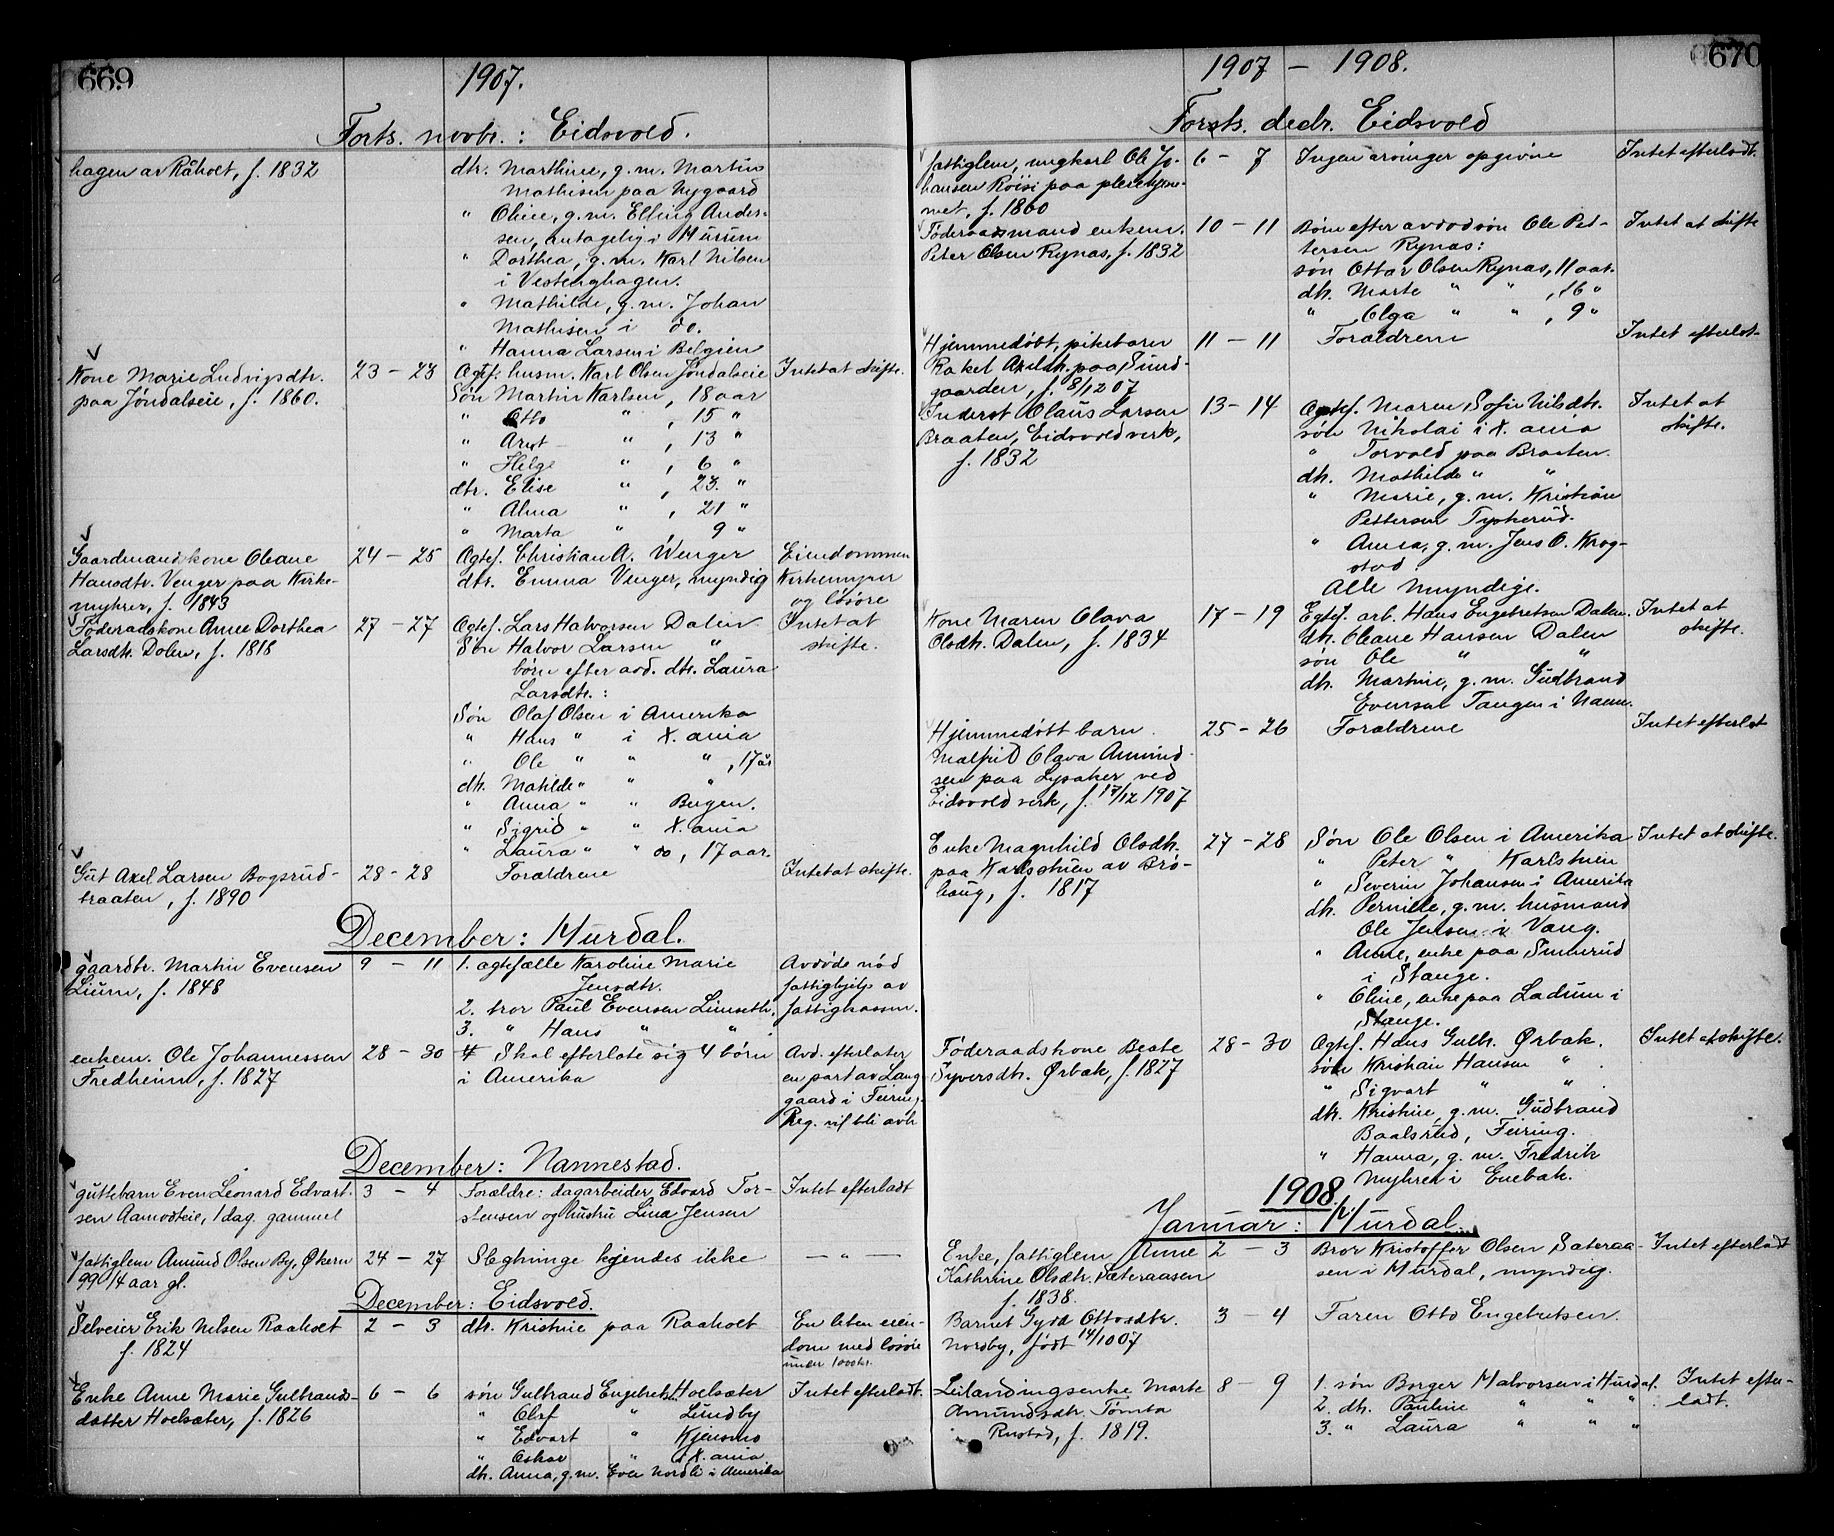 669
1907.
Forts. novbr.: Eidsvold.
hagen av Råholt, f. 1832
dtr. Marthine, g.m. Martin
Mathisen paa Nygaard
" Oline, g.m. Elling Ander-
sen, antagelig i Hurum
" Dorthea, g.m. Karl Nilsen
i Vestenghagen.
" Mathilde, g.m. Johan
Mathisen i do.
" Hanna Larsen i Belgien
Kone Marie Ludvigsdtr.
paa Jøndalseie, f. 1860.
23 – 23
Ægtef. husm. Karl Olsen Jøndalseie
Søn Martin Karlsen, 18 aar
" Otto " , 15 "
" Arnt " , 13 "
" Helge " , 6 "
dtr. Elise " , 23. "
" Alma " , 21 "
" Marta " 9 "
Intet at skifte.
Gaardmandskone Oleane
Hansdtr. Venger paa Kirke-
myhrer, f. 1843
24 – 25
Ægtef. Christian A. Wenger
dtr. Emma Venger, myndig
Eiendommen
Kirkemyrer
og løsøre
Føderaadskone Anne Dorthea
Larsdtr. Dalen, f. 1818
27 – 27
Ægtef. Lars Halvorsen Dalen
Søn Halvor Larsen "
børn efter avd. dtr. Laura
Larsdtr.:
Søn Olaf Olsen i Amerika
" Hans " i X.ania
" Ole " " " , 17 år
dtr. Matilde " " "
" Anna " " Bergen.
" Sigrid " " X.ania
" Laura " " do, 17 aar.
Intet at
skifte.
Gut Axel Larsen Bogsrud-
braaten, f. 1890
28 – 28
Forældrene
Intet at skifte.
December: Hurdal.
gaardbr. Martin Evensen
Lium, f. 1848
9 – 11
1. ægtefælle Karoline Marie
Jensdtr.
2. bror Paul Evensen Limseth,
3. " Hans " "
Avdøde nød
fattighjelp av
fattigkassen.
enkem. Ole Johannessen
Fredheim, f. 1827
28 – 30
Skal efterlate sig 4 børn
i Amerika
Avd. efterlater
en part av Lang
gaard i Feiring.
Reg. vil bli avh
December: Nannestad.
guttebarn Even Leonard Edvart-
sen Aamodteie, 1 dag gammel
3 – 4
Forældre: dagarbeider Edvard Tor-
stensen og hustru Lina Jensen
Intet efterladt
fattiglem Amund Olsen By, Økern
99 1/4 aar gl.
24 – 27
Slegtninge kjendes ikke
– " –
December: Eidsvold.
Selveier Erik Nilsen Raaholt
f. 1824
2 – 3
dtr. Kristine paa Raaholt
En liten eien-
dom med løsøre
under 1000 kr.
Enke Anne Marie Gulbrands-
datter Hoelsæter, f. 1826
6 – 6
søn Gulbrand Engebrets. Hoelsæter
" Olaf " Lundby
" Edvart " Kjensmo
" Oskar " i X.ania
dtr. Anna, g.m. Even Nordli i Amerika
Intet efterladt.
670
1907 – 1908.
Forts. decbr. Eidsvold
fattiglem, ungkarl Ole Jo-
hansen Roisi paa pleiehjem-
met, f. 1860
6 – 7
Ingen arvinger opgivne
Intet efterladt.
Føderaadsmand enkem.
Peter Olsen Rynas, f. 1832
10 – 11
Børn efter avdød søn Ole Pet-
tersen Rynas:
søn Ottar Olsen Rynas, 11 aar.
dtr. Marte " " , 16 "
" Olga " " , 9 "
Intet at skifte
Hjemmedøbt, pikebarn
Rakel Axeldtr. paa Sund-
gaarden, f. 8/12 07
11 – 11
Forældrene
Intet efterlat-
Inderst Olaus Larsen
Braaten, Eidsvoldverk,
f. 1832
13 – 14
Ægtef. Maren Sofie Nilsdtr.
søn Nikolai i X.ania
" Torvald paa Braaten.
dtr. Mathilde " "
" Marie, g.m. Kristian
Pettersen Tyskerud.
" Anna, g.m. Jens O. Krog-
stad.
Alle myndige.
Intet at
skifte.
Kone Maren Olava
Olsdtr. Dalen, f. 1834
17 – 19
Egtef. arb. Hans Engebretsen Dalen.
dtr. Oleane Hansen Dalen
søn Ole " "
dtr. Martine, g.m. Gudbrand
Evensen Tangen i Nann.
Intet at
skifte.
Hjemmedøbt barn
Malfrid Olava Amund-
sen paa Lysaker ved
Eidsvold verk, f. 17/12 1907
25 – 26
Forældrene
Intet efterlat
Enke Magnhild Olsdtr.
paa Karlsstuen av Brø-
haug, f. 1817
27 – 28
Søn Ole Olsen i Amerika
" Peter " Karlstuen
" Severin Johansen i Amerika
dtr. Pernille, g.m. husmand
Ole Jensen i Vang.
" Anne, enke paa Sinnerud
i Stange.
" Oline, enke paa Ladum i
Stange.
Intet at skifte.
Føderaadskone Beate
Syversdtr. Ørbæk, f. 1827
28 – 30
Ægtef. Hans Gulbr. Ørbæk.
søn Kristian Hansen "
" Sigvart " "
dtr. Kristine, g.m. Gudbrand
Baalsrud, Feiring.
" Hanna, g.m. Fredrik
Myhren i Enebak.
Intet at skifte.
1908.
Januar: Hurdal.
Enke, fattiglem Anne
Kathrine Olsdtr. Sæteraasen
f. 1838.
2 – 3
Bror Kristoffer Olsen Sæteraa-
sen i Hurdal, myndig.
Intet efterladt
Barnet Gyda Ottosdtr.
Nordby, født 14/10 07
3 – 4
Faren Otto Engebretsen.
Leilændingsenke Marte
Amundsdtr. Tømta
Rustad, f. 1819.
8 – 9
1. søn Borger Halvorsen i Hurdal.
2. dtr. Pauline " " "
3. " Laura " " "
Intet efter-
ladt.